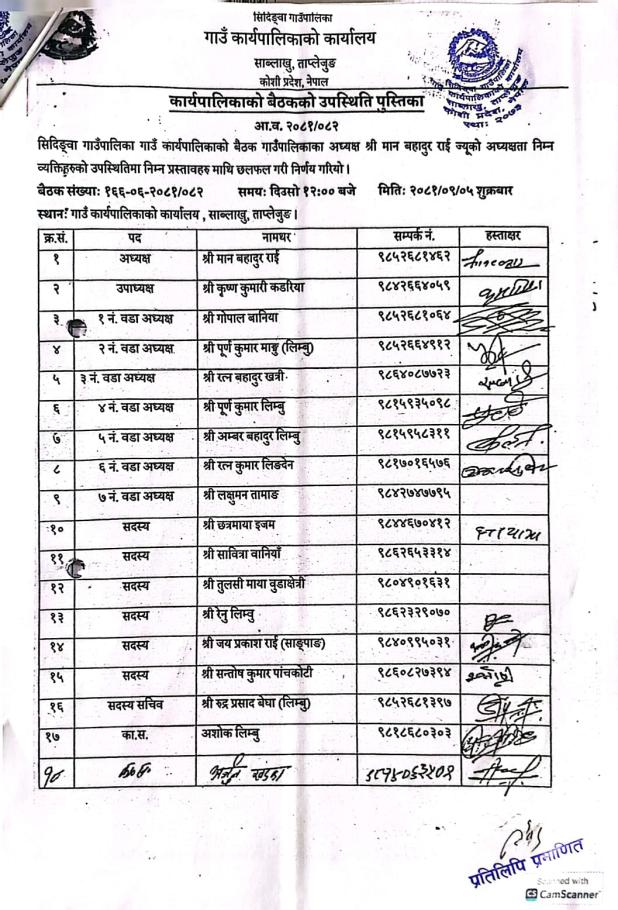 सिदिङ्वा गाउँपालिका
गाउँ कार्यपालिकाको कार्यालय
साब्लाखु, ताप्लेजुङ
कोशी प्रदेश, नेपाल
कार्यपालिकाको बैठकको उपस्थिति पुस्तिका
आ.व. २०८१/०८२
सिदिङ्वा गाउँपालिका गाउँ कार्यपालिकाको बैठक गाउँपालिकाका अध्यक्ष श्री मान बहादुर राई ज्यूको अध्यक्षता निम्न
व्यक्तिहरुको उपस्थितिमा निम्न प्रस्तावहरु माथि छलफल गरी निर्णय गरियो।
बैठक संख्याः १६६-०६-२०८१/०८२ समयः दिउसो १२:०० बजे मितिः २०८१/०९/०५ शुक्रबार
स्थानः गाउँ कार्यपालिकाको कार्यालय , साब्लाखु, ताप्लेजुङ।
क्र.सं. पद नामथर सम्पर्क नं. हस्ताक्षर
१ अध्यक्ष श्री मान बहादुर राई ९८५२६८१४६२
२ उपाध्यक्ष श्री कृष्ण कुमारी कडरिया ९८४२६६४०५९
३ १ नं. वडा अध्यक्ष श्री गोपाल बानिया ९८५२६८१०६४
४ २ नं. वडा अध्यक्ष श्री पूर्ण कुमार माङ्बु (लिम्बु) ९८५२६६४९१२
५ ३ नं. वडा अध्यक्ष श्री रत्न बहादुर खत्री ९८६४०८७७२३
६ ४ नं. वडा अध्यक्ष श्री पूर्ण कुमार लिम्बु ९८१५९३५०९८
७ ५ नं. वडा अध्यक्ष श्री अम्बर बहादुर लिम्बु ९८१५९५८३११
८ ६ नं. वडा अध्यक्ष श्री रत्न कुमार लिङदेन ९८१७०१६५७६
९ ७ नं. वडा अध्यक्ष श्री लक्षुमन तामाङ ९८४२७४७७९५
१० सदस्य श्री छत्रमाया इजम ९८४४६७०४१२
११ सदस्य श्री सावित्रा वानियाँ ९८६२६५३३१४
१२ सदस्य श्री तुलसी माया वुडाक्षेत्री ९८०४९०१६३१
१३ सदस्य श्री रेनु लिम्बु ९८६२३२९०७०
१४ सदस्य श्री जय प्रकाश राई (साङ्पाङ) ९८४०९९५०३१
१५ सदस्य श्री सन्तोष कुमार पांचकोटी ९८६०८२७३९४
१६ सदस्य सचिव श्री रुद्र प्रसाद बेघा (लिम्बु) ९८५२६८१३९७
१७ का.स. अशोक लिम्बु ९८१८६८०३०३
१८ अर्जुन खड्का
प्रतिलिपि प्रमाणित
Scanned with
CS CamScanner